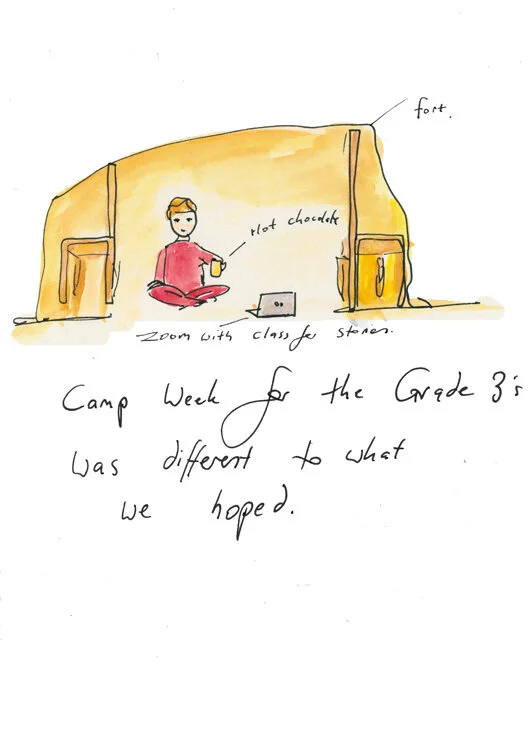 fort.
Hot chocolate
Zoom with class for stories.
Camp Week for the Grade 3's
was different to what
we hoped.